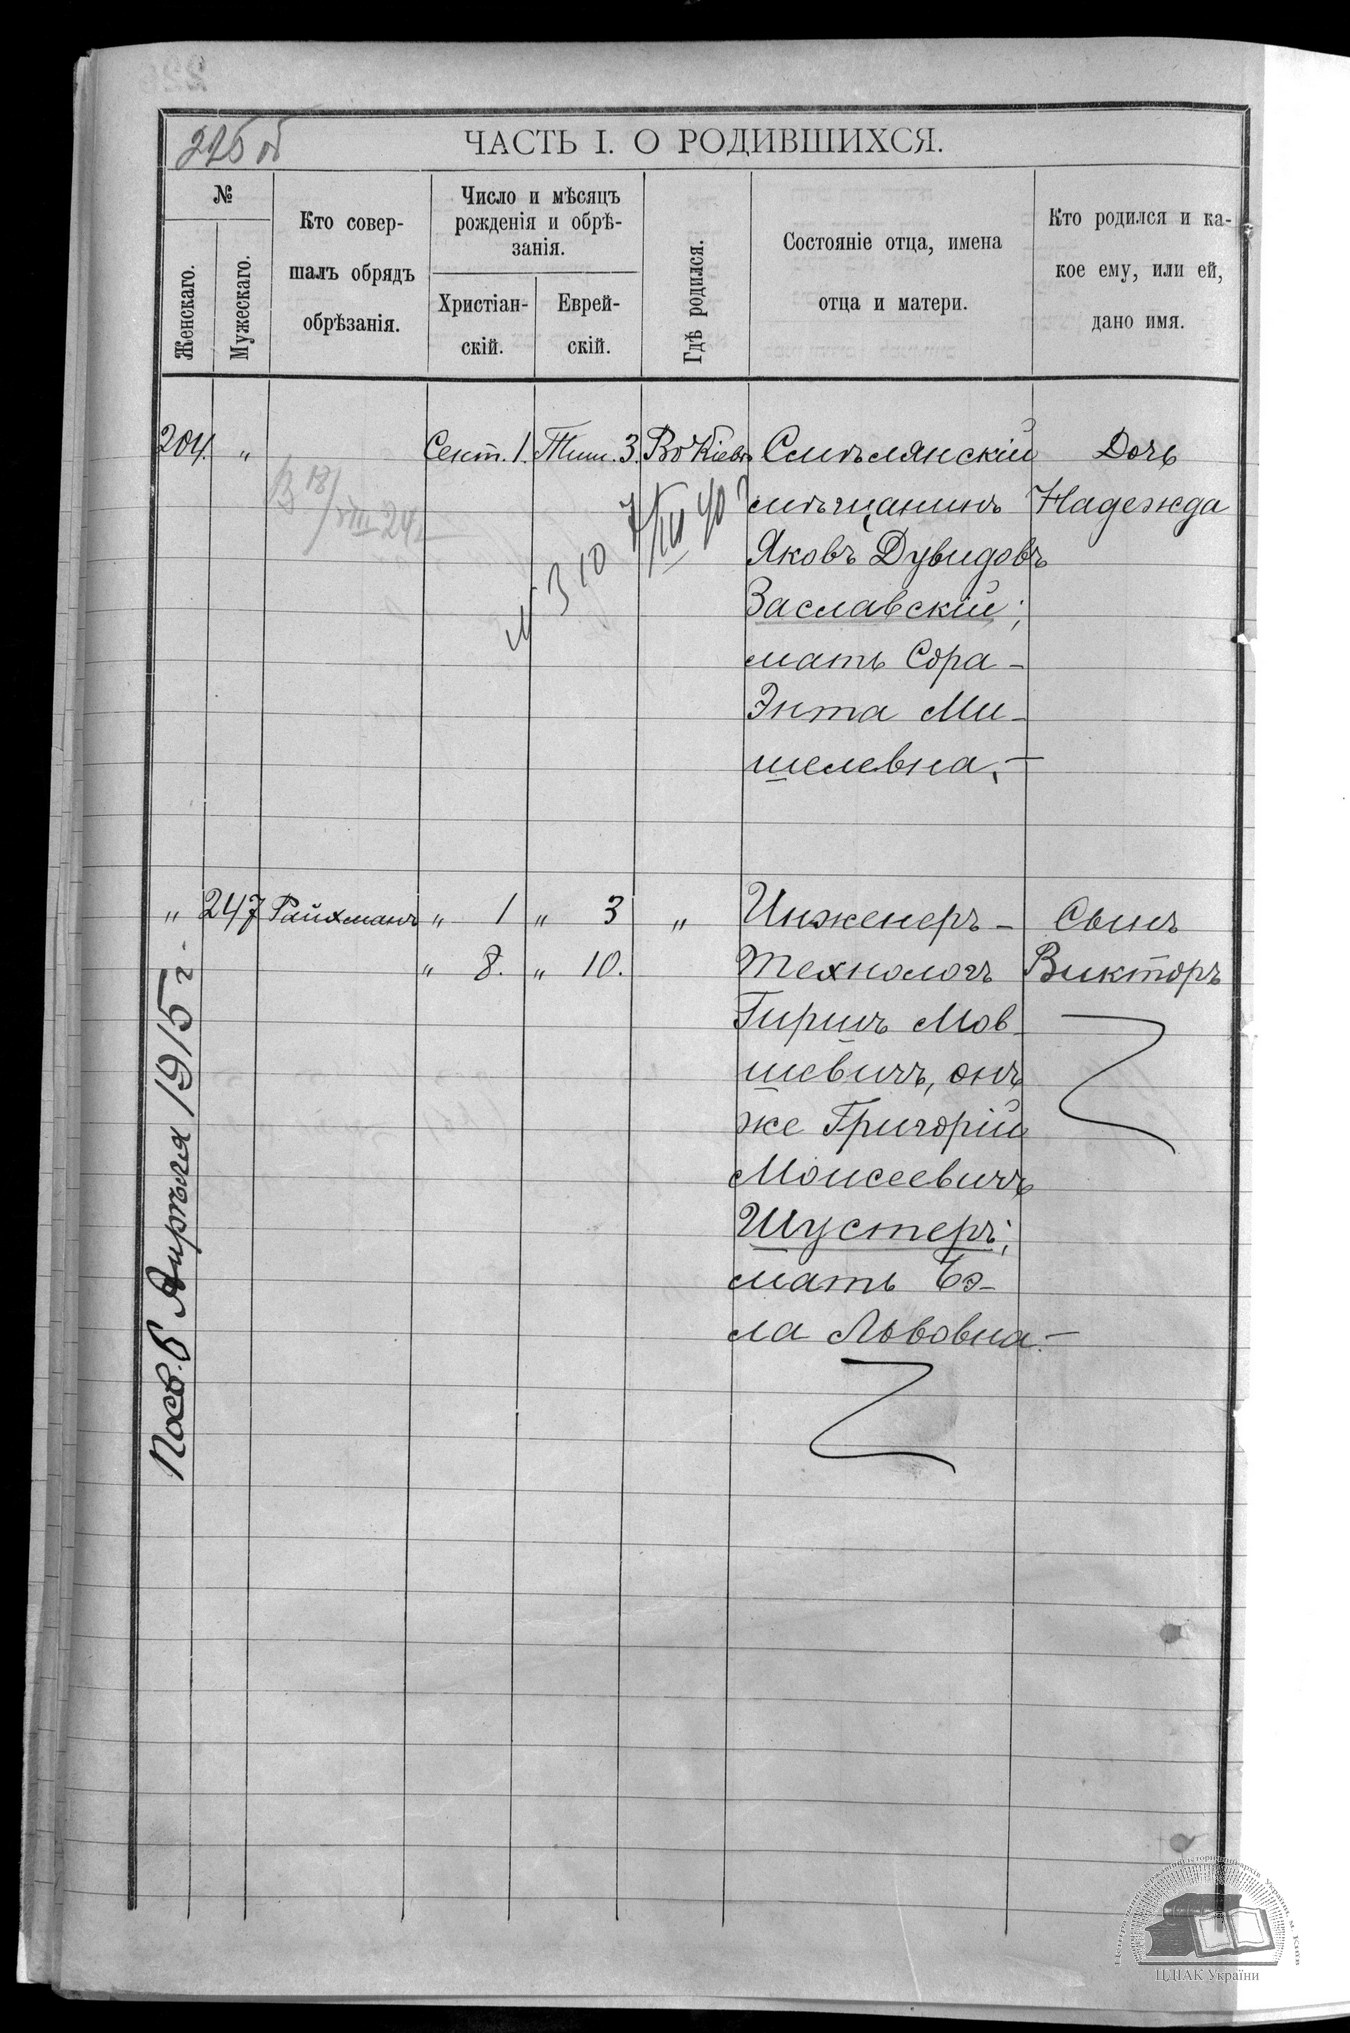 225 об
ЧАСТЬ I. О РОДИВШИХСЯ.
№
Женскаго.
Мужескаго.
Кто совер-
шалъ обрядъ
обрѣзанія.
Число и мѣсяцъ
рожденія и обрѣ-
занія.
Христіан-
скій.
Еврей-
скій.
Гдѣ родился.
Состояніе отца, имена
отца и матери.
Кто родился и ка-
кое ему, или ей,
дано имя.
204. „ Сент. 1. Тиш. 3. Въ Кіевѣ Смѣлянскій Дочь
мѣщанинъ Надежда
Яковъ Дувидовъ
Заславскій;
мать Сора-
Энта Ми-
шелевна.—
В 18/VIII 24
№ 310 7/III 40
„ 247 Райхманъ „ 1 „ 3 „ Инженеръ- Сынъ
„ 8. „ 10. Технологъ Викторъ
Гиршъ Мов-
шевичъ, онъ
же Григорій
Моисеевичъ
Шустеръ;
мать Бэ-
ла Львовна.—
Посв. 6 Апрѣля 1915 г.
ЦДІАК України